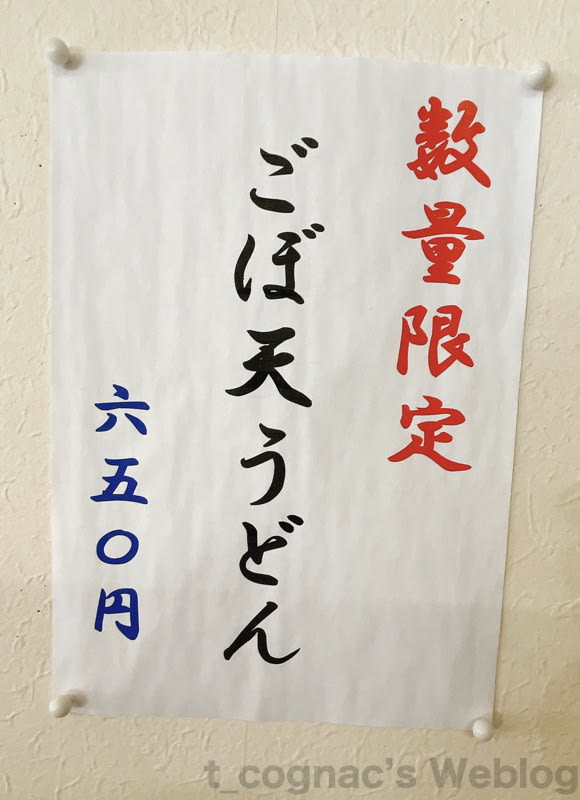 数量限定
ごぼ天うどん
六五〇円
t_cognac's Weblog